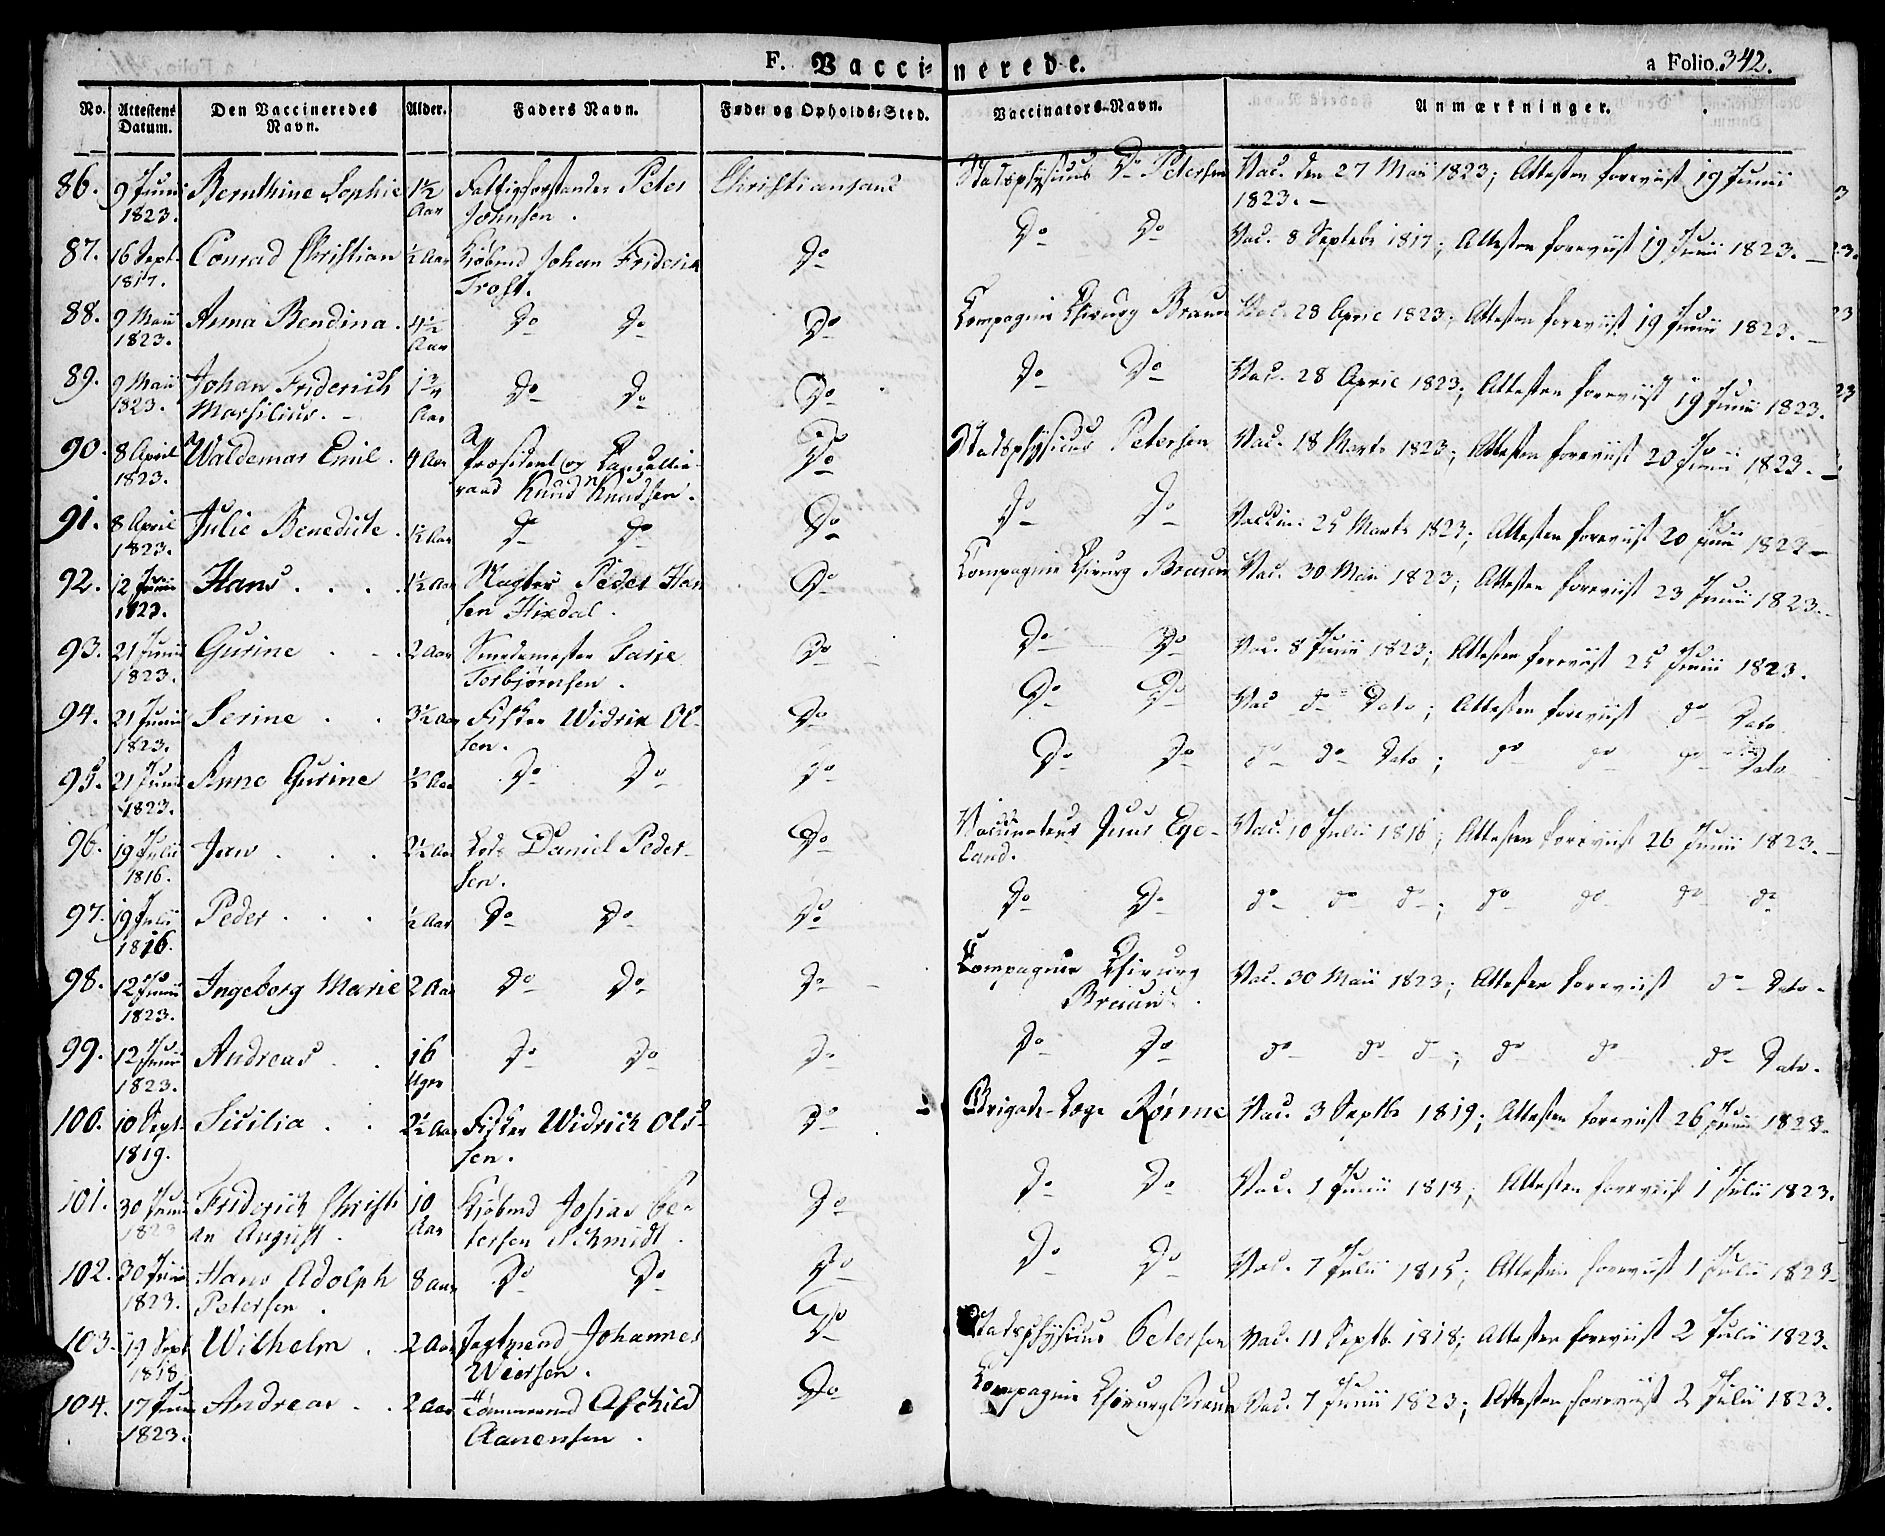 F. Vaccinerede. a Folio 342.
No. Attestens Datum. Den Vaccineredes Navn. Alder. Faders Navn. Føde- og Opholds-Sted. Vaccinators-Navn. Anmærkninger.
86. 9 Junii Bernthine Sophie 1½ Fattigforstander Peter Christiansand Stadsphysicus Dr Petersen Vac. den 27 Maii 1823; Attesten foreviist 19 Junii
1823. Aar Johnsen. 1823. —
87. 16 Sept. Conrad Christian ½ Aar Kjøbmd Johan Friderik Do Do Do Vac. 8 Septebr 1817; Attesten foreviist 19 Junii 1823. —
1817. Trost.
88. 9 Maii Anna Bendina. 4½ Do Do Do Compagnie Chirurg Braun Vac. 28 April 1823; Attesten foreviist 19 Junii 1823. —
1823. Aar
89. 9 Maii Johan Friderich 1¾ Do Do Do Do Do Vac. 28 April 1823; Attesten foreviist 19 Junii 1823.
1823. Marsilius. — Aar
90. 8 April Waldemar Emil. 4 Aar Præsident og Cancellie- Do Stadsphysicus Petersen Vac. 18 Marts 1823; Attesten foreviist 20 Junii 1823. —
1823. raad Knud Knudsen.
91. 8 April Julie Benedicte. ½ Aar Do Do Do Do Do Vaccin. 25 Marts 1823; Attesten foreviist 20 Junii 1823 —
1823.
92. 12 Junii Hans . . . 1½ Aar Vægter Peder Han Do Compagnie Chirurg Braun Vac. 30 Maii 1823; Attesten foreviist 23 Junii 1823.
1823. sen
93. 21 Junii Gurine . . . 2 Aar Smedemester Do Do Do Vac. 8 Junii 1823; Attesten foreviist 25 Junii 1823.
1823. Torbjørnsen.
94. 21 Junii Serine . . 3½ Aar Fisker Widrik Ol- Do Do Do Vac do Dato; Attesten foreviist do Dato
1823. sen.
95. 21 Junii Anne Gurine ½ Aar Do Do Do Do Do do do Dato; do do do Dato
1823.
96. 19 Julii Jan . . . 2½ Aar Lods Daniel Peder- Do Vaccinateur Juul Ege- Vac. 10 Julii 1816; Attesten foreviist 26 Junii 1823. —
1816. sen. land.
97. 19 Julii Peder . . . ½ Aar Do Do Do Do Do do do do; do do do do
1816.
98. 12 Junii Ingeborg Marie 2 Aar Do Do Do Compagnie Chirurg Vac. 30 Maii 1823; Attesten foreviist do Dato.
1823. Braun.
99. 12 Junii Andreas . . 16 Do Do Do Do Do do do do; do do do Dato.
1823. Uger
100. 10 Sept. Sicilia . . 2½ Aar Fisker Widrich Ols- Do Brigade-Læge Rømme Vac. 3 Septbr 1819; Attesten foreviist 26 Junii 1823.
1819. sen.
101. 30 Junii Friderich Christi 10 Kjøbmd Josias Pe- Do Do Do Vac. 1 Junii 1813; Attesten foreviist 1 Julii 1823.
1823 an August. Aar tersen Schmidt.
102. 30 Junii Hans Adolph 8 Aar Do Do Do Do Do Vac. 7 Julii 1815; Attesten foreviist 1 Julii 1823.
1823. Petersen.
103. 19 Sept Wilhelm . . 2 Aar Johannes Do Stadsphysicus Petersen Vac. 11 Septb. 1818; Attesten foreviist 2 Julii 1823.
1818 Weiersen.
104. 17 Junii Andreas . . 2 Aar Tømmermd Aschild Do Compagnie Chirurg Braun Vac. 7 Junii 1823; Attesten foreviist 2 Julii 1823.
1823. Aanensen.